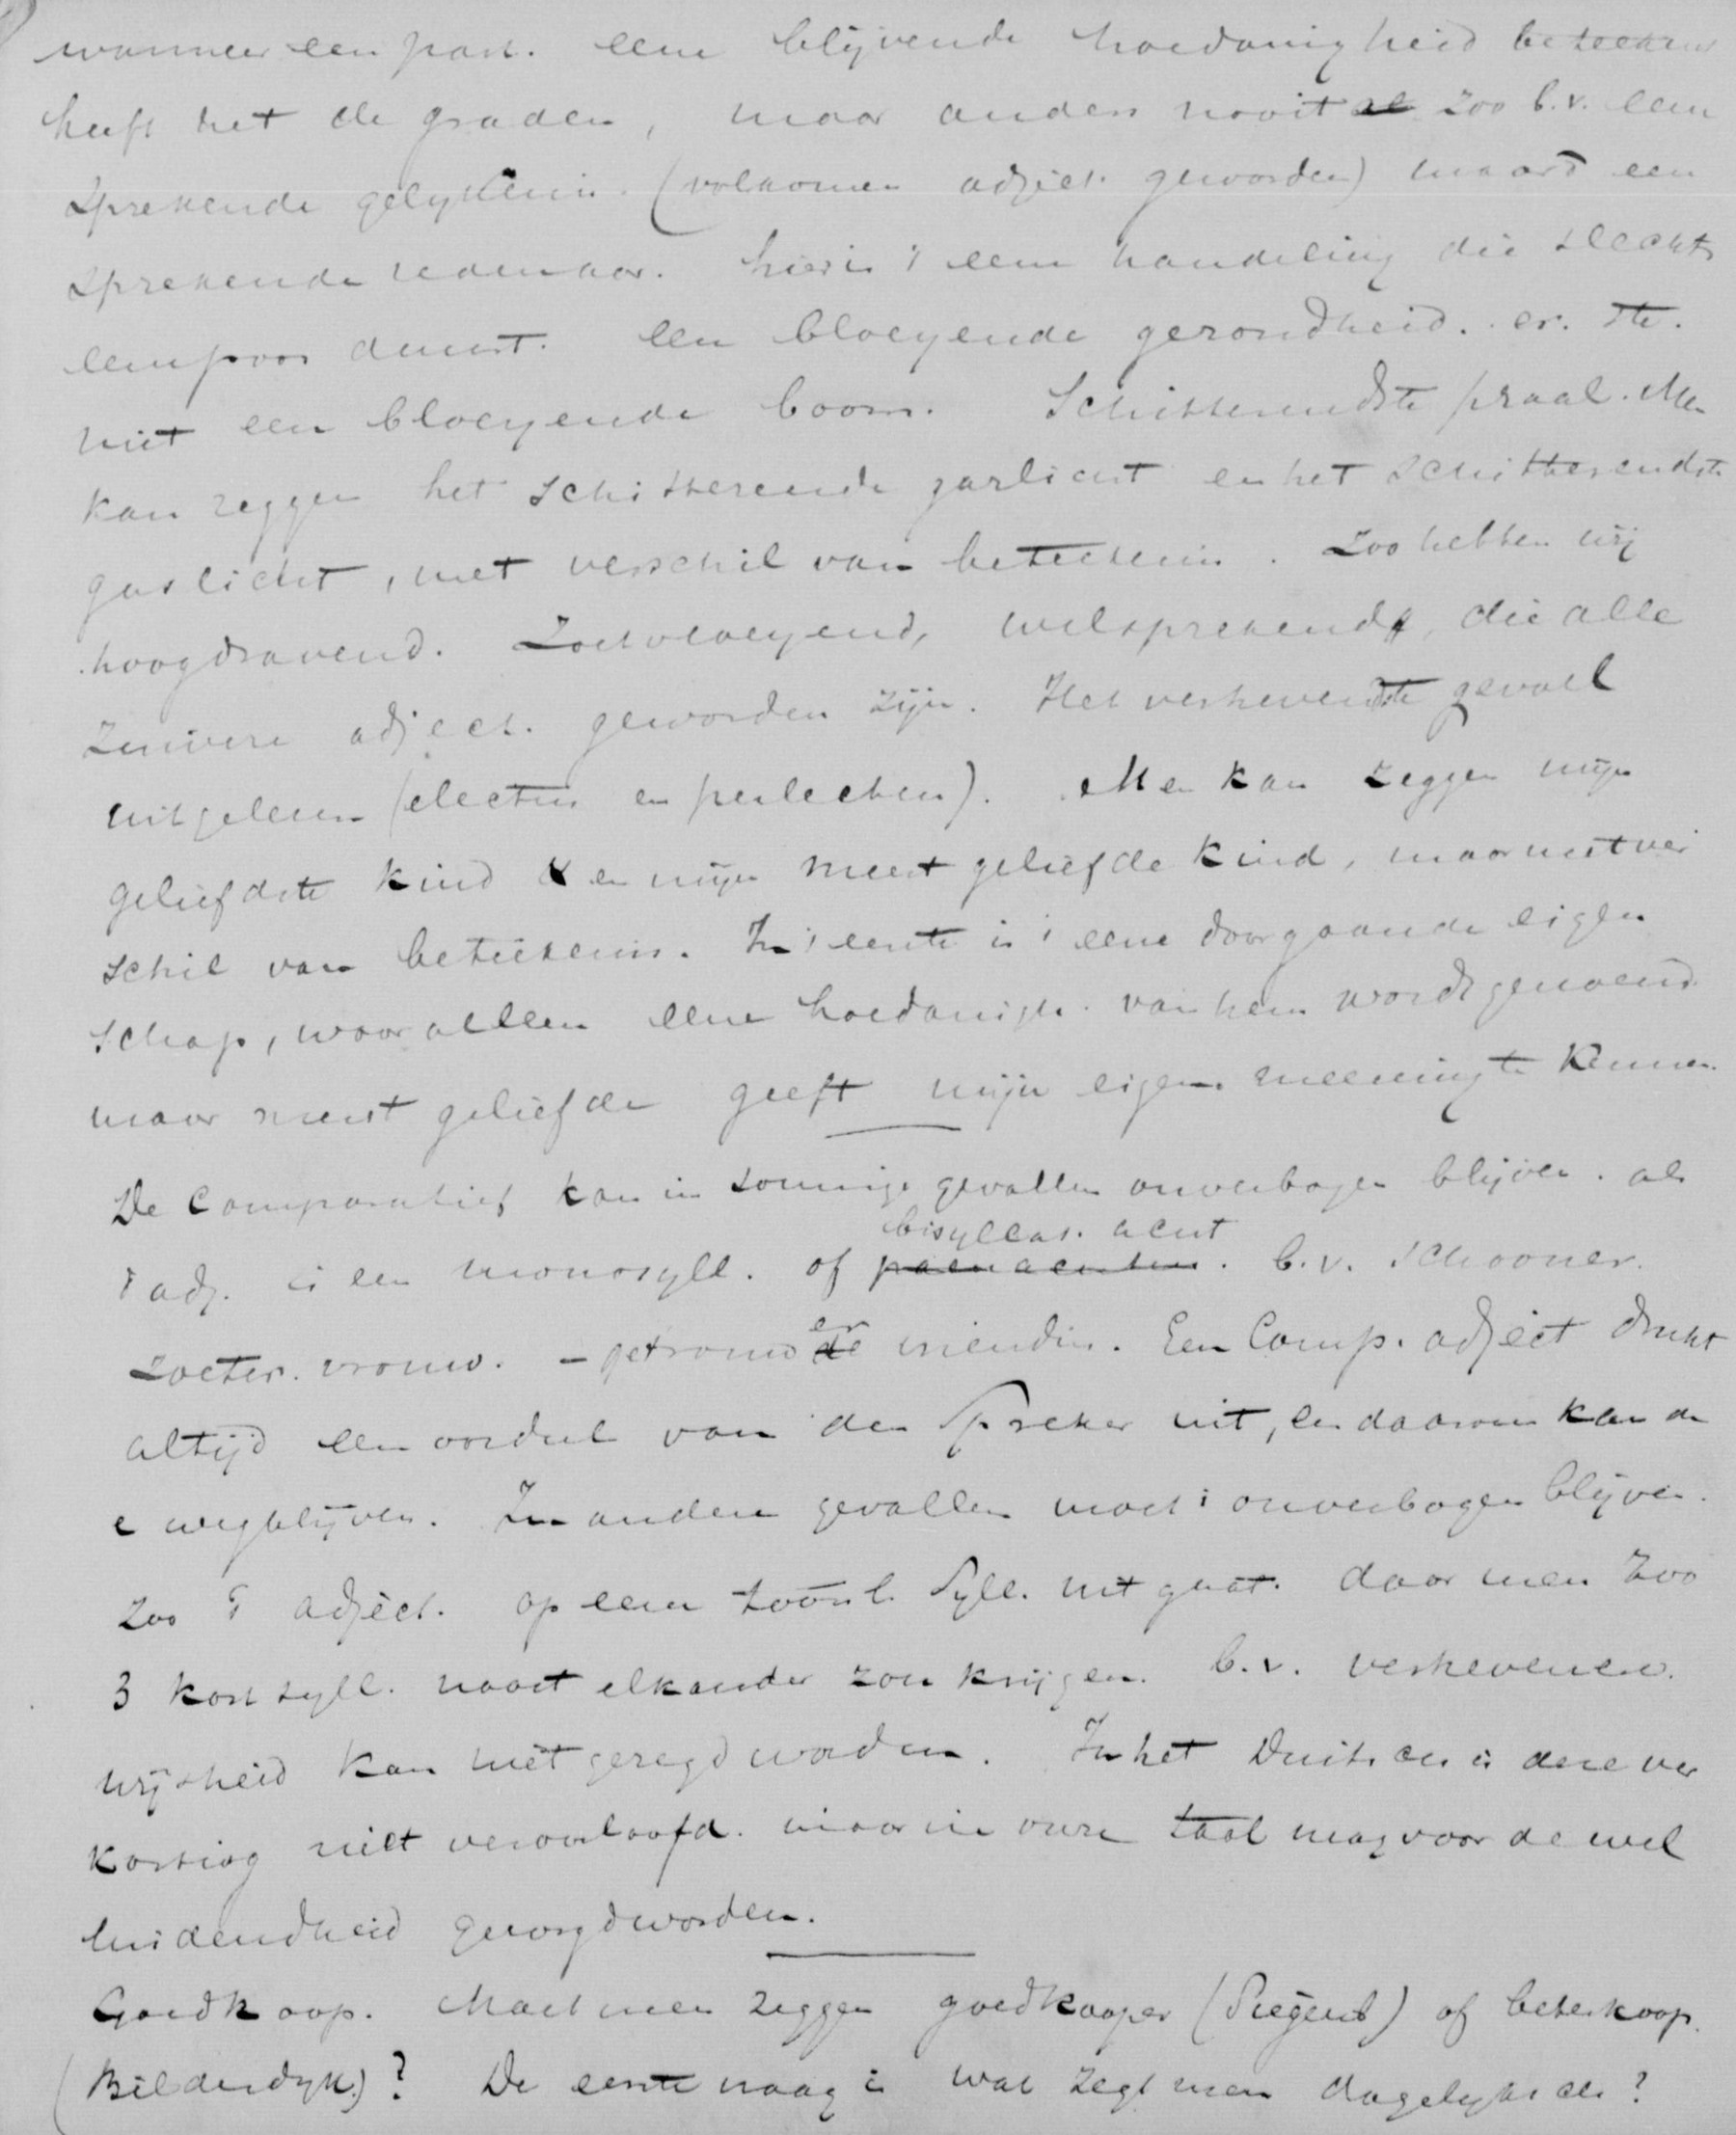 wanneer een part. eene blijvende hoedanigheid beteekent
heeft het de graden, maar anders nooit zoo b.v. eene
sprekende gelykenis. (volkomen adject. geworden) maar een
sprekende redenaar. hier is 't eene handeling die slechts
eenpoos duurt. een bloeyende gezondheid. er. ste.
niet een bloeyende boom. Schitterendste praal. Men
kan zeggen het schitterende gaslicht en het schitterendste
gaslicht, met verschil van beteekenis. Zoo hebben wij
hoogdravend. Zoetvloeyend, welsprekend, die alle
zuivere adject. geworden zijn. Het verhevendste geval
uitgelezen (electus en perlectus). Men kan zeggen mijn
geliefdste kind en mijn meest geliefde kind, maar met ver
schil van beteekenis. In 't eerste is 't eene doorgaande eigen
schap, waar alleen eene hoedanigh. van hem wordt genoemd
maar meest geliefde geeft mijn eigen meening te kennen.
De Comparatief kan in sommige gevallen onverbogen blijven. als
't adj. is een monosyll. of bisyllab. acut b.v. schooner.
zoeter. vrouw. - getrouwer vriendin. Een Comp. adject drukt
altijd een oordeel van den Spreker uit, en daarom kan de
e wegblijven. In andere gevallen moet 't onverbogen blijven.
zoo 't adject. op eene toonl. Syll. uit gaat. daar men zoo
3 korte syll. naast elkander zou krijgen. b.v. verhevenere.
wijsheid kan niet gezegd worden. In het Duitsch is deze ver
korting niet veroorloofd. maar in onze taal mag voor de wel
luidendheid gezorgd worden.
Goedkoop. Moet men zeggen goedkooper (Siegenb) of beterkoop.
(Bilderdyk)? De eerste vraag is wat zegt men dagelyks ch?